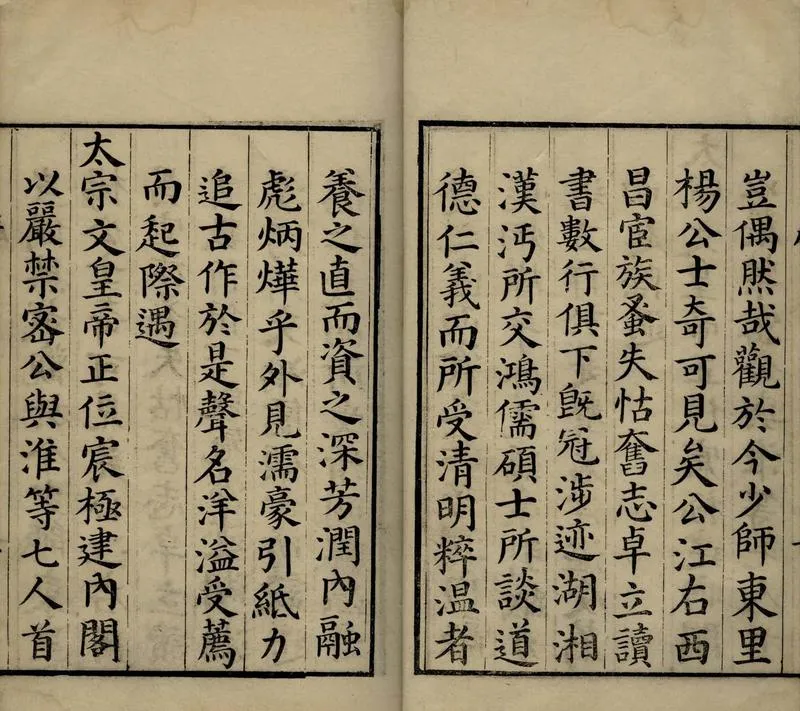 豈偶然哉觀於今少師東里
楊公士奇可見矣公江右西
昌宦族蚤失怙奮志卓立讀
書數行俱下旣冠涉迹湖湘
漢沔所交鴻儒碩士所談道
德仁義而所受清明粹温者
養之直而資之深芳潤內融
彪炳燁乎外見濡豪引紙力
追古作於是聲名洋溢受薦
而起際遇
太宗文皇帝正位宸極建內閣
以嚴禁宻公與淮等七人首